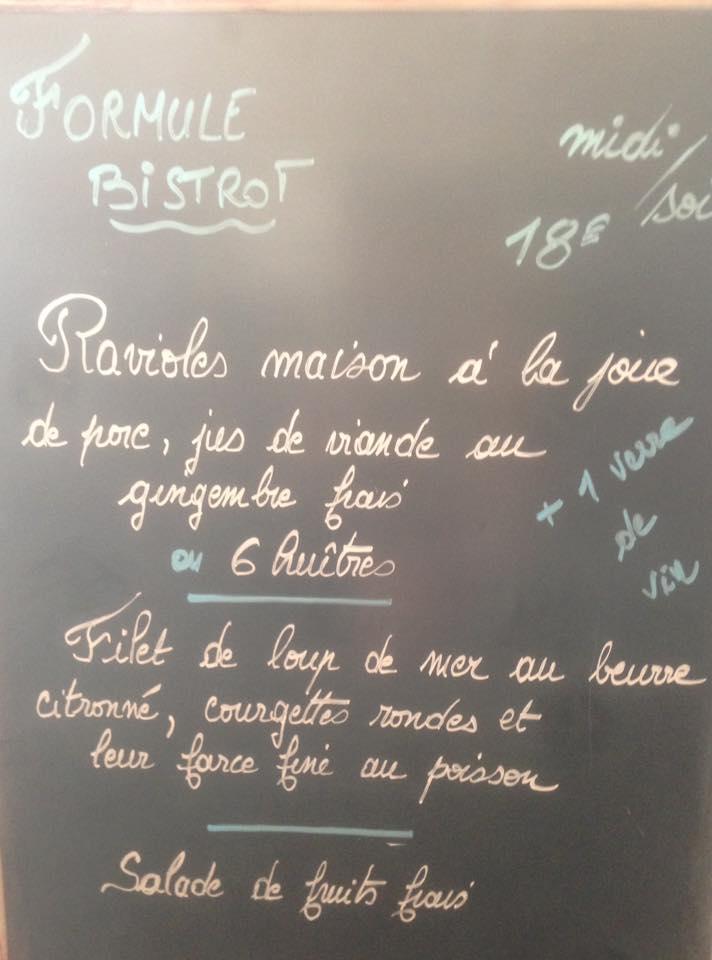 FORMULE
BISTROT
midi/soi
18€
Ravioles maison à la joue
de porc, jus de viande au
gingembre frais
+ 1 verre
de
vin
ou 6 huîtres
Filet de loup de mer au beurre
citronné, courgettes rondes et
leur farce fine au poisson
Salade de fruits frais